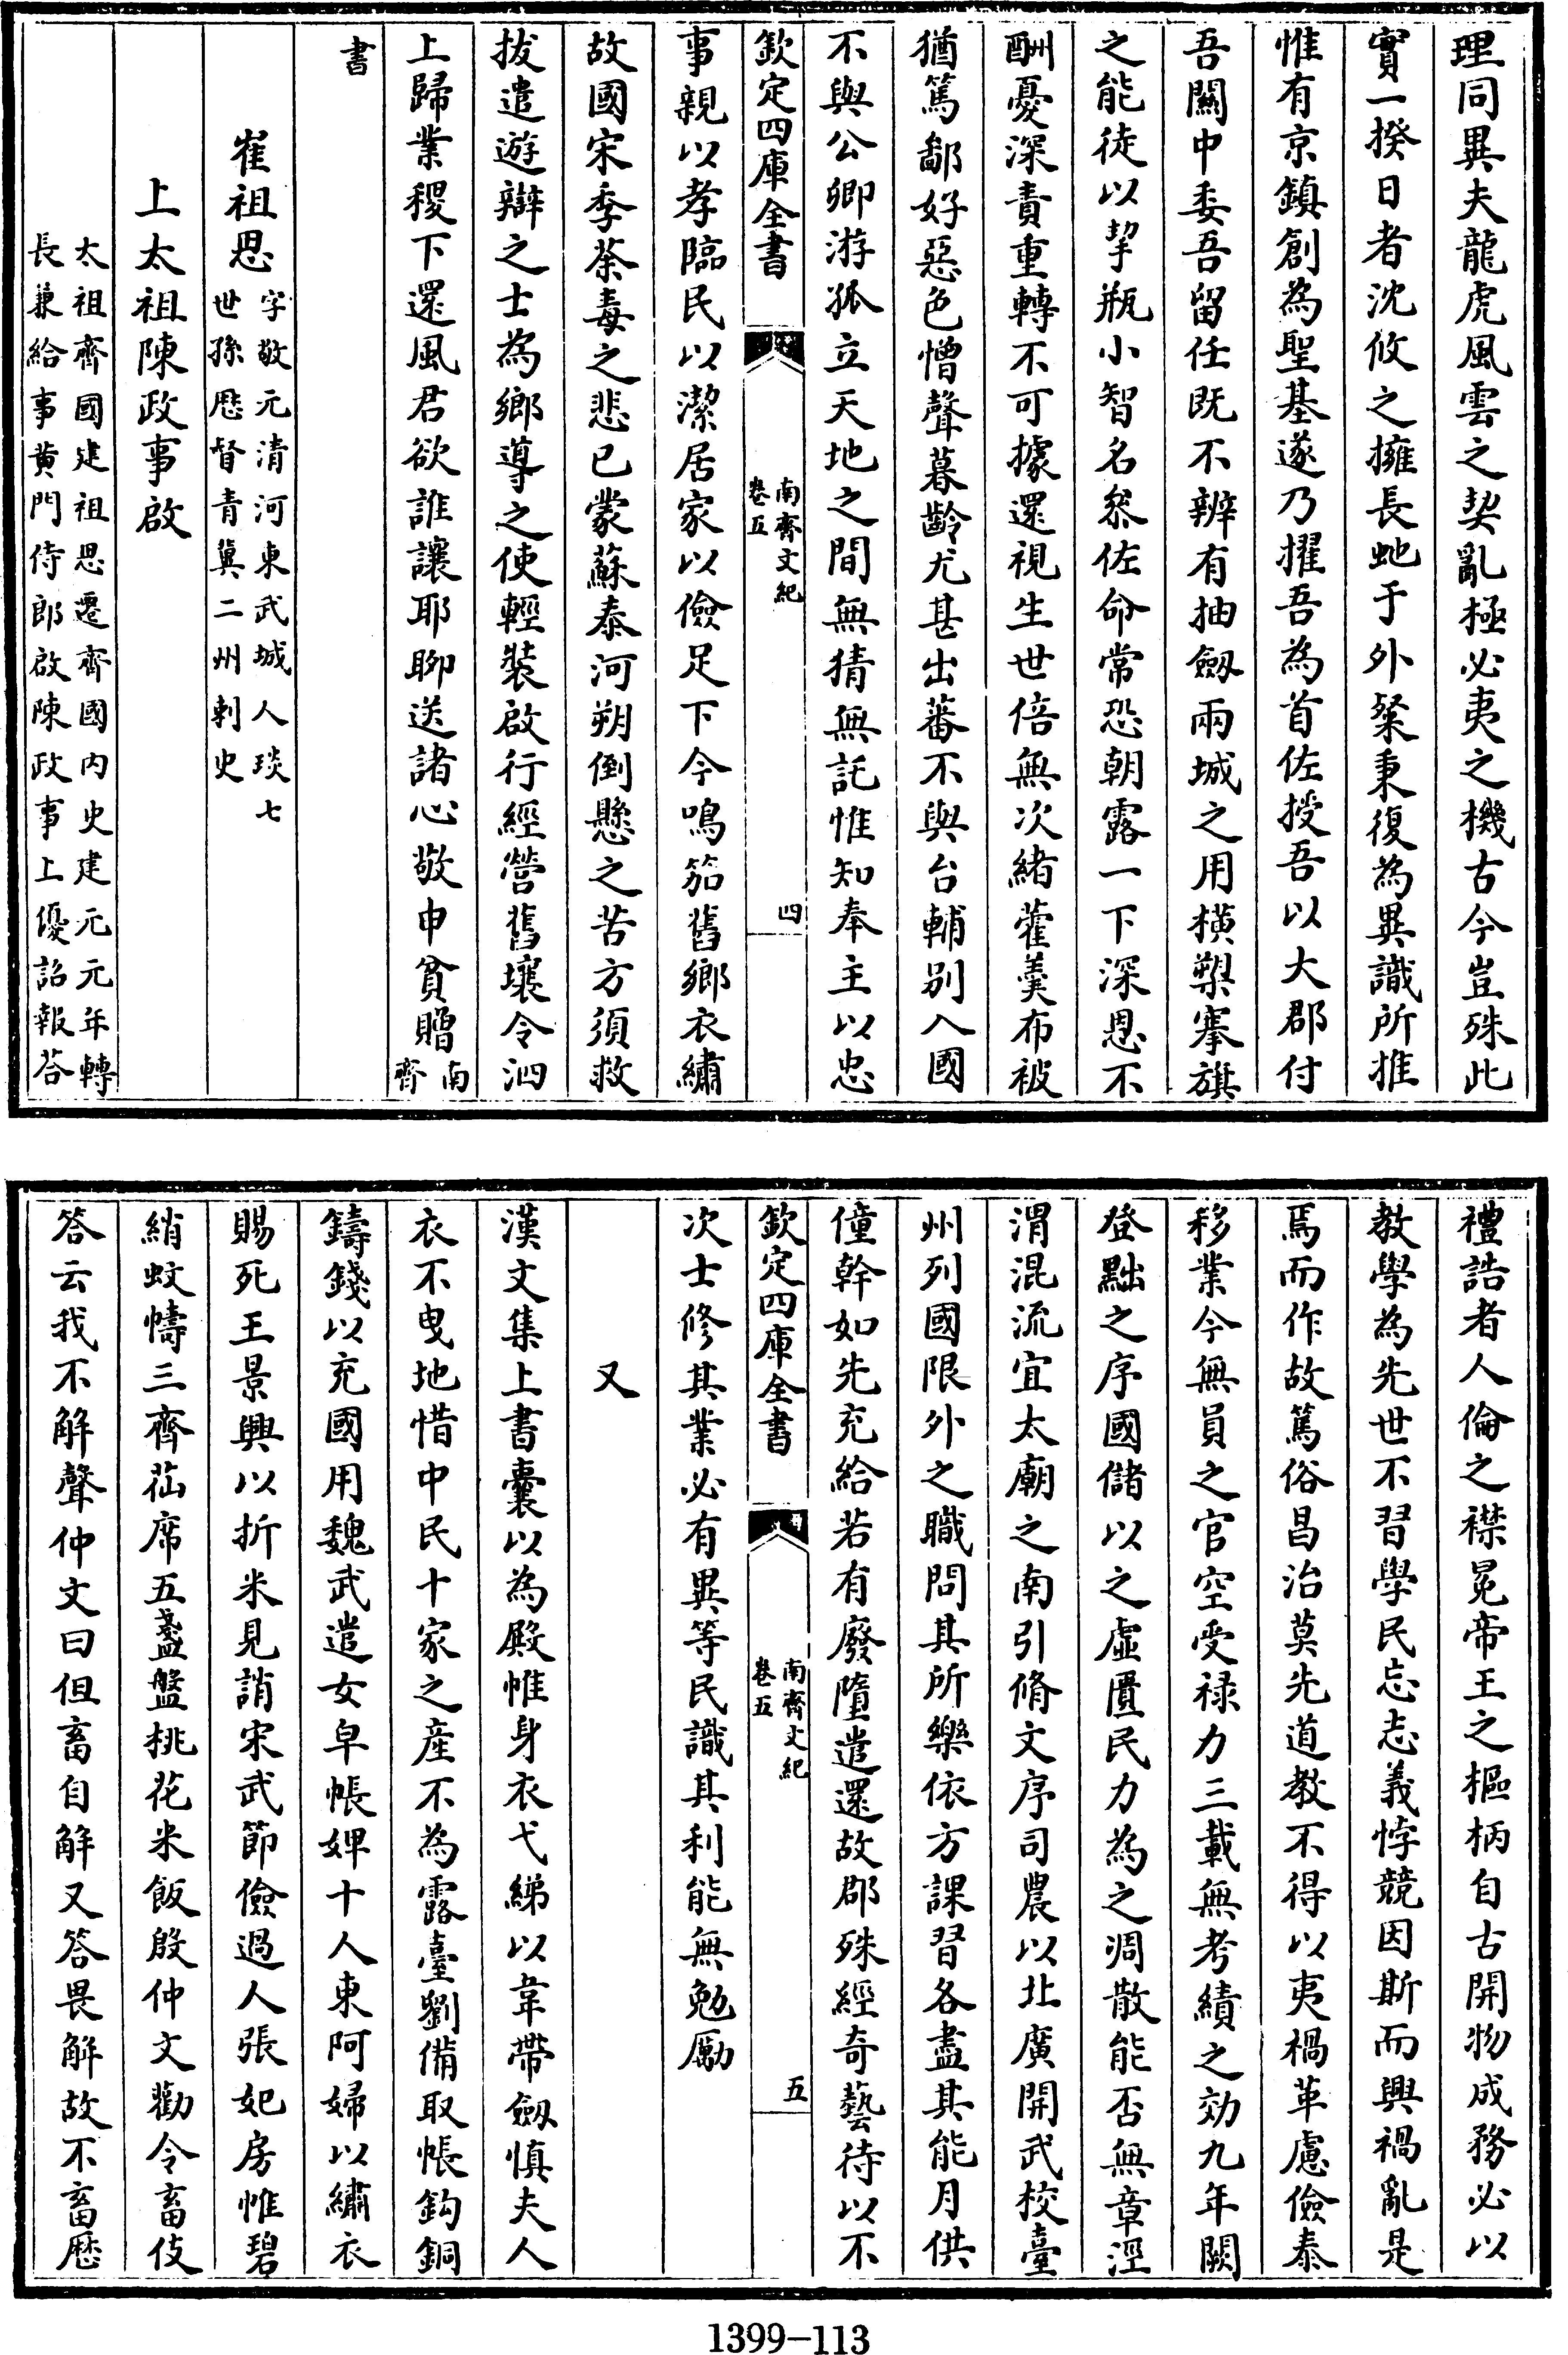 理同異夫龍虎風雲之契亂極必夷之機古今豈殊此
實一揆日者沈攸之擁長虵于外粲秉復為異識所推
惟有京鎮創為聖基遂乃擢吾為首佐授吾以大郡付
吾關中委吾留任既不辨有抽劒兩城之用横槊搴旗
之能徒以挈瓶小智名叅佐命常恐朝露一下深恩不
酬憂深責重轉不可據還視生世倍無次緒藿羮布被
猶篤鄙好惡色憎聲暮齡尤甚出蕃不與台輔别入國
不與公卿游孤立天地之間無猜無託惟知奉主以忠
欽定四庫全書
南齊文紀
卷五
四
事親以孝臨民以潔居家以儉足下今鳴笳舊鄉衣繡
故國宋季荼毒之悲已蒙蘇泰河朔倒懸之苦方須救
拔遣遊辯之士為鄉導之使輕裝啟行經營舊壤令泗
上歸業稷下還風君欲誰讓耶聊送諸心敬申貧贈南
齊
書
崔祖思字敬元清河東武城人琰七
世孫歷督青冀二州刺史
上太祖陳政事啟
太祖齊國建祖思遷齊國内史建元元年轉
長兼給事黄門侍郎啟陳政事上優詔報答
禮誥者人倫之襟冕帝王之樞柄自古開物成務必以
教學為先世不習學民忘志義悖競因斯而興禍亂是
焉而作故篤俗昌治莫先道教不得以夷禍革慮儉泰
移業今無員之官空受禄力三載無考績之効九年闕
登黜之序國儲以之虚匱民力為之凋散能否無章涇
渭混流宜太廟之南引脩文序司農以北廣開武校臺
州列國限外之職問其所樂依方課習各盡其能月供
僮幹如先充給若有廢墮遣還故郡殊經奇藝待以不
欽定四庫全書
南齊文紀
卷五
五
次士修其業必有異等民識其利能無勉厲
又
漢文集上書囊以為殿帷身衣弋綈以韋帶劒慎夫人
衣不曳地惜中民十家之產不為露臺劉備取帳鈎銅
鑄錢以充國用魏武遣女皁帳婢十人東阿婦以繡衣
賜死王景興以折米見誚宋武節儉過人張妃房帷碧
綃蚊幬三齊苮席五盞盤桃花米飯殷仲文勸令畜伎
答云我不解聲仲文曰但畜自解又答畏解故不畜歷
1399-113